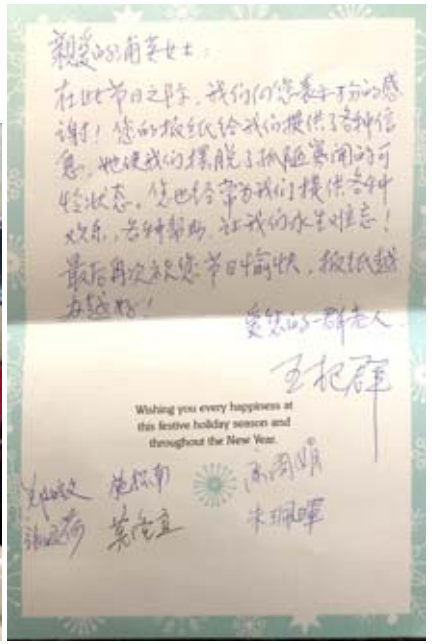 亲爱的浦英女士:
在此节日之际,我们向您表示十分的感
谢!您的报纸给我们提供了各种信
息,她使我们摆脱了孤陋寡闻的可
怜状态。您也经常为我们提供各种
欢乐,各种帮助,让我们永生难忘!
最后再次祝您节日愉快,报纸越
办越好!
爱您的一群老人
Wishing you every happiness at
this festive holiday season and
throughout the New Year.
朱珮暉